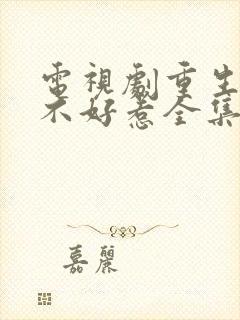 電視劇重生
不好惹全集
嘉麗